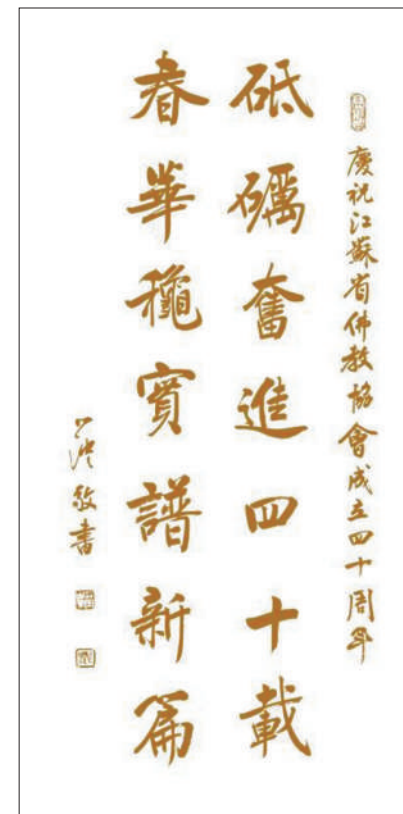 慶祝江蘇省佛教協會成立四十周年
砥礪奮進四十載
春華龝實譜新篇
敬書